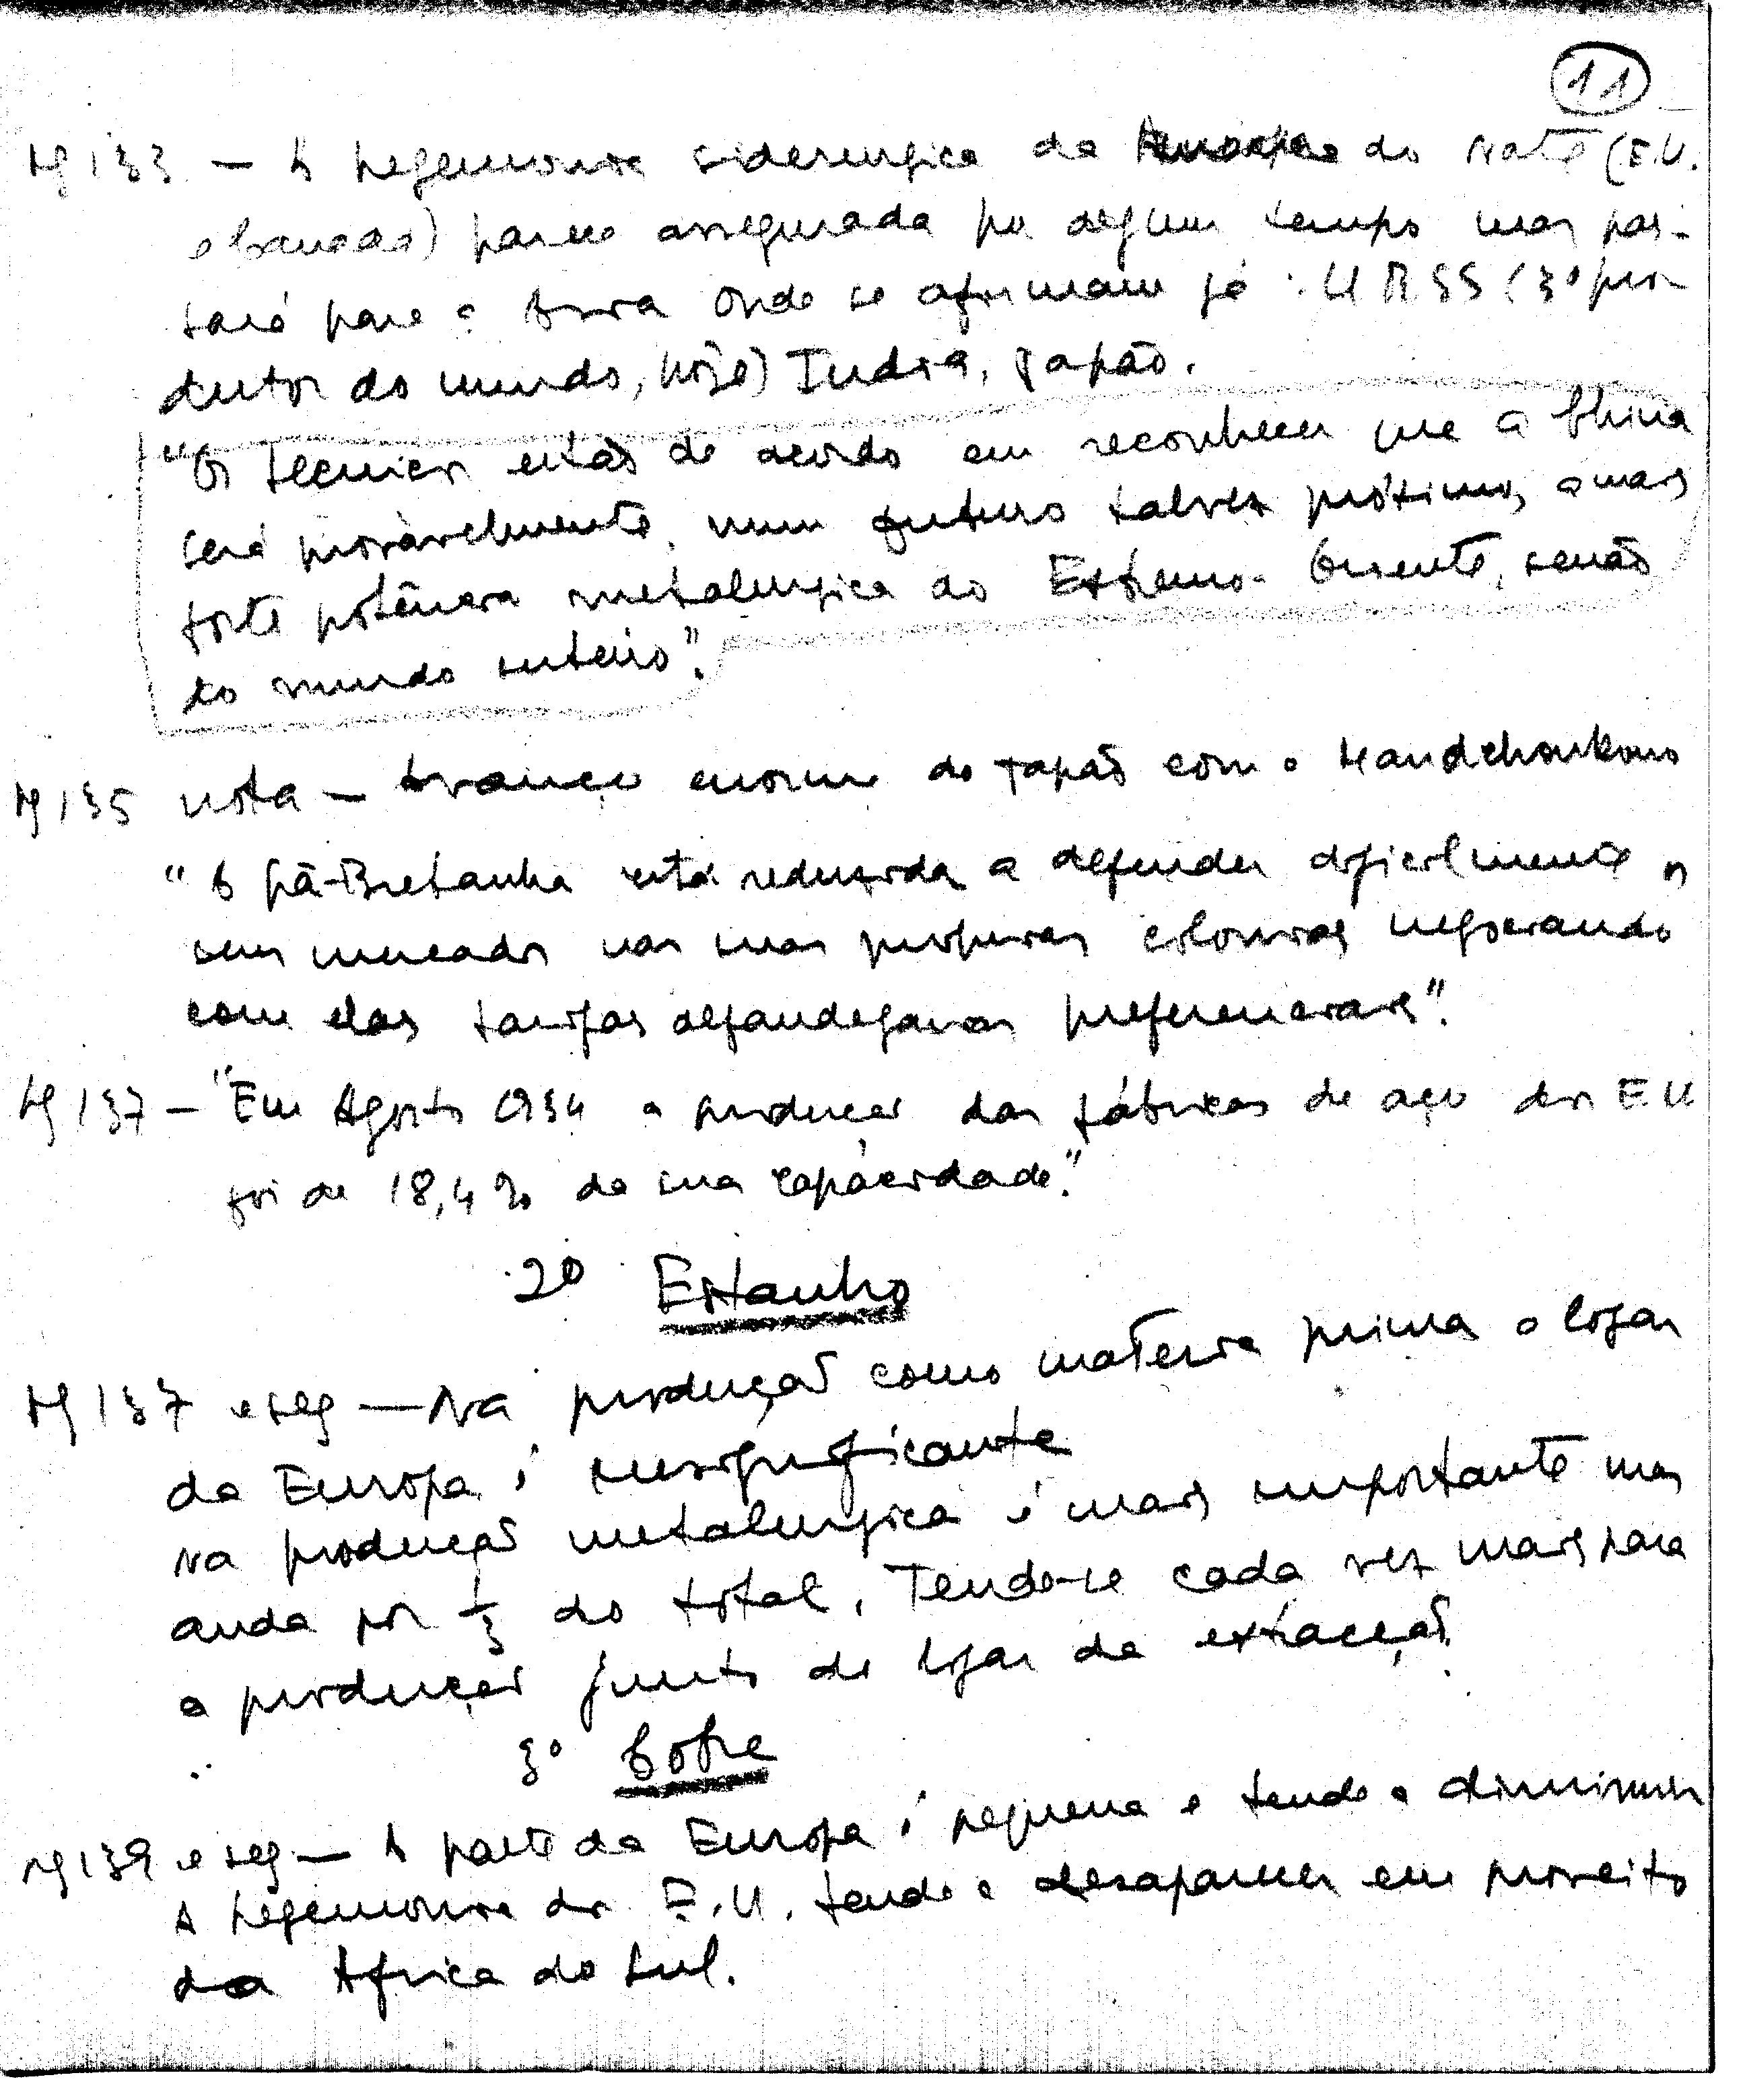 11
Pg 133 — A hegemonia siderurgica da America do Norte (E.U.
e Canadá) parece assegurada por algum tempo mas pas-
sará para a Asia onde se afirmam já: URSS (3º pro-
dutor do mundo, hoje) India, Japão.
"Os tecnicos estão de acordo em reconhecer que a China
será provàvelmente, num futuro talvez próximo, a mais
forte potência metalurgica do Extremo-Oriente, senão
do mundo inteiro".
Pg 135 nota — Avanço enorme do Japão com o Mandchoukouo
"A Grã-Bretanha está reduzida a defender dificilmente os
seus mercados nas suas proprias colonias negociando
com elas tarifas alfandegarias preferenciais".
Pg 137 — "Em Agosto 1934 a produção das fábricas de aço dos E.U
foi de 18,4% da sua capacidade."
2º Estanho
Pg 137 e seg — Na produção como materia prima o logar
da Europa é insignificante
Na produção metalurgica é mais importante mas
anda por 1/3 do total. Tende-se cada vez mais para
a produção junto do logar da extracção.
3º Cobre
Pg 139 e seg — A parte da Europa é pequena e tende a diminuir
A hegemonia dos E.U. tende a desaparecer em proveito
da Africa do Sul.